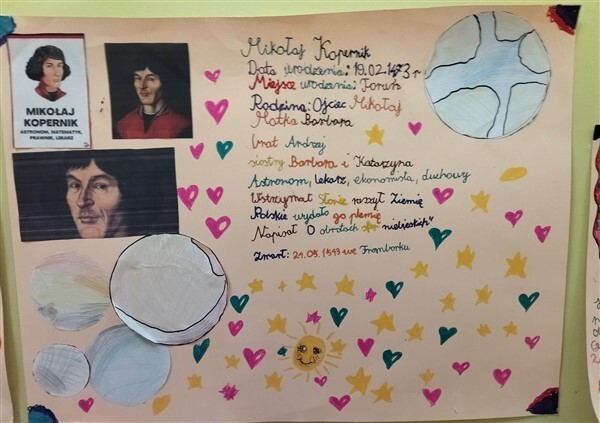 MIKOŁAJ
KOPERNIK
ASTRONOM, MATEMATYK,
PRAWNIK, LEKARZ
Mikołaj Kopernik
Data urodzenia: 19.02.1473 r
Miejsce urodzenia: Toruń
Rodzina: Ojciec Mikołaj
Matka Barbara
brat Andrzej
siostry Barbara i Katarzyna
Astronom, lekarz, ekonomista, duchowy
Wstrzymał Słońce ruszył Ziemię
Polskie wydało go plemię
Napisał "O obrotach sfer niebieskich"
Zmarł: 21.05.1543 we Fromborku